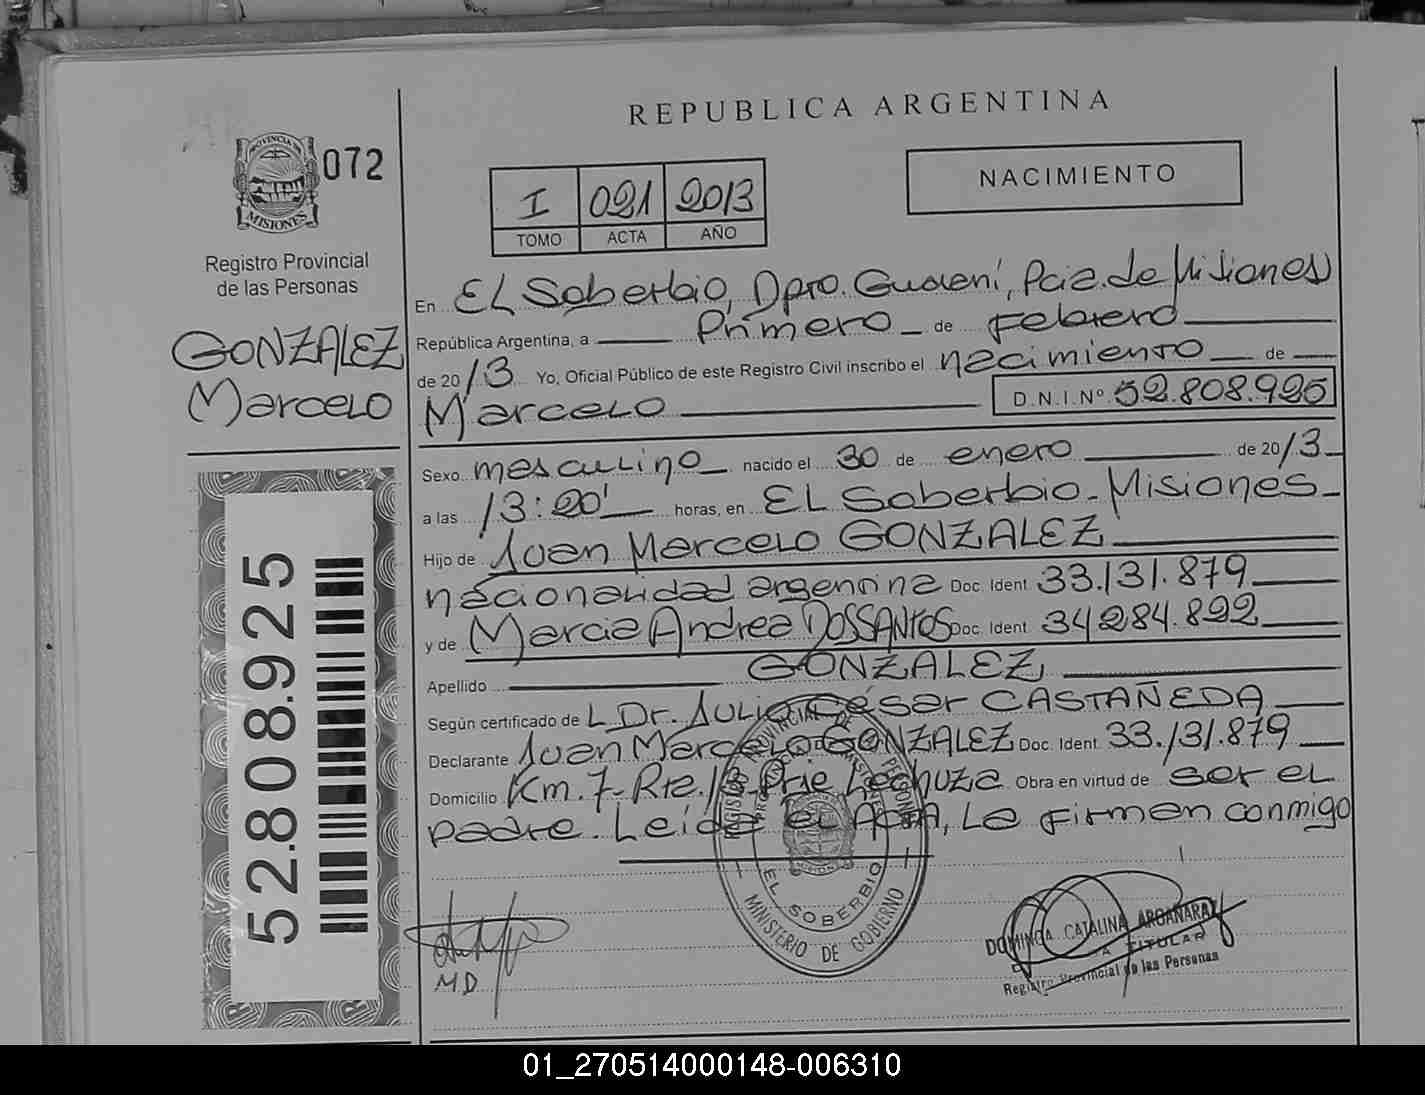 REPUBLICA ARGENTINA
PROVINCIA DE
MISIONES
072
I 021 2013
TOMO ACTA AÑO
NACIMIENTO
Registro Provincial
de las Personas
GONZALEZ
Marcelo
52.808.925
En EL Soberbio, Dpto. Guaraní, Pcia. de Misiones
República Argentina, a Primero de Febrero
de 2013 Yo, Oficial Público de este Registro Civil inscribo el nacimiento de
Marcelo D.N.I.Nº 52.808.925
Sexo masculino nacido el 30 de enero de 2013
a las 13:20' horas, en EL Soberbio - Misiones -
Hijo de Juan Marcelo GONZALEZ
nacionalidad argentina Doc. Ident. 33.131.879
y de Marcia Andrea DOSSANTOS Doc. Ident. 34284.822
Apellido GONZALEZ
Según certificado de L Dr. Julio César CASTAÑEDA
Declarante Juan Marcelo GONZALEZ Doc. Ident. 33.131.879
Domicilio Km. 7- Rta. 13- Prje Lechuza Obra en virtud de ser el
padre. Leída el ActA, La Firman conmigo
REGISTRO PROVINCIAL DE LAS PERSONAS
PROVINCIA DE MISIONES
EL SOBERBIO
MINISTERIO DE GOBIERNO
MD
DOMINGA CATALINA ARGAÑARAZ
TITULAR
Registro Provincial de las Personas
01_270514000148-006310